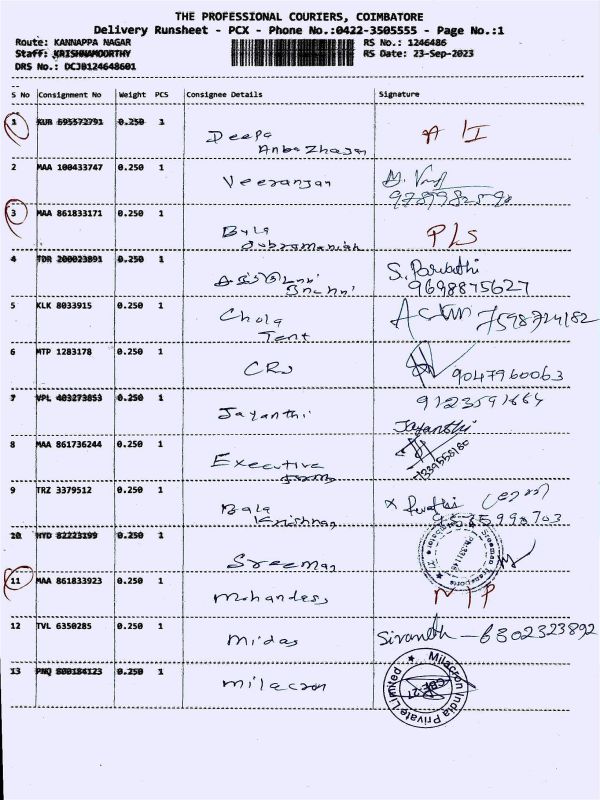 THE PROFESSIONAL COURIERS, COIMBATORE
Delivery Runsheet - PCX - Phone No.:0422-3505555 - Page No.:1
Route: KANNAPPA NAGAR RS No.: 1246486
Staff: KRISHNAMOORTHY RS Date: 23-Sep-2023
DRS No.: DCJ0124648601
S No Consignment No Weight PCS Consignee Details Signature
1 KUB 695572791 0.250 1
Deepa
Anbazhagan
2 MAA 100433747 0.250 1
Veeranjan
3 MAA 861833171 0.250 1
Bala
Subramaniah P/S
4 TDR 200023891 0.250 1
S. Parvathi
9698875627
5 KLK 8033915 0.250 1
Chola 7598724182
Tent
6 MTP 1283178 0.250 1
9047960063
7 VPL 403273853 0.250 1
Jayanthi
Jayanthi
8 MAA 861736244 0.250 1
Executive
9 TRZ 3379512 0.250 1
Bala
Krishnan
10 HYD 82223199
Sreeman
Sreeman Transports
11 MAA 861833923 0.250 1
Mohandess N/P
12 TVL 6350285 0.250 1
Midas 6302323892
13 PNQ 800184123 0.250 1
Milacron
Milacron India Private Limited